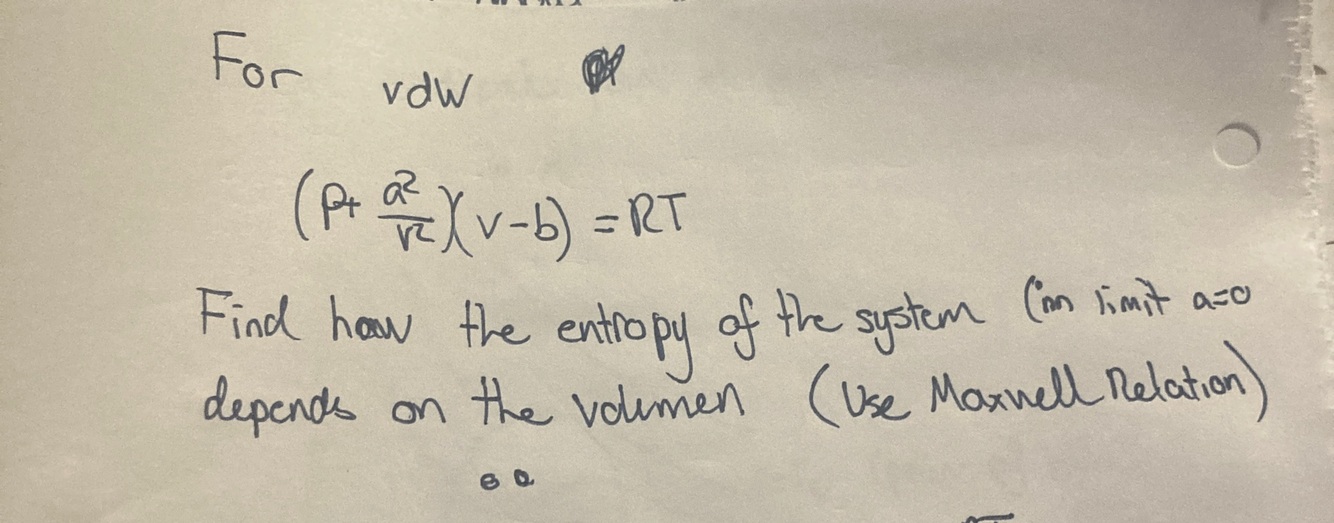 For vdW
(P+ a²/v²)(v-b) = RT
Find how the entropy of the system (in limit a=0
depends on the volumen (Use Maxwell Relation)